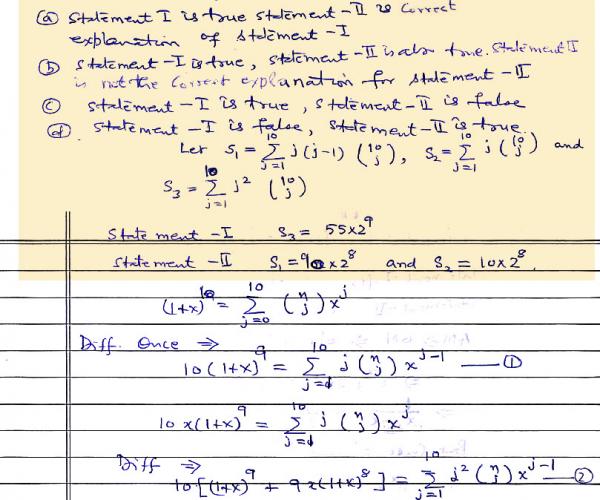 (a) Statement I is true statement-II is Correct
explanation of statement-I
(b) Statement-I is true, statement-II is also true. Statement I
is not the Correct explanation for statement-II
(c) Statement-I is true, Statement-II is false
(d) Statement-I is false, Statement-II is true.
Let S₁ = ∑_{j=1}^{10} j(j-1) (10 j), S₂ = ∑_{j=1}^{10} j (10 j) and
S₃ = ∑_{j=1}^{10} j² (10 j)
Statement-I S₃ = 55×2⁹
Statement-II S₁ = 90×2⁸ and S₂ = 10×2⁸.
(1+x)^{10} = ∑_{j=0}^{10} (n j) x^j
Diff. Once ⇒
10(1+x)⁹ = ∑_{j=1}^{10} j (n j) x^{j-1} —— ①
10x(1+x)⁹ = ∑_{j=1}^{10} j (n j) x^j
Diff ⇒
10[(1+x)⁹ + 9x(1+x)⁸] = ∑_{j=1}^{10} j² (n j) x^{j-1} — ②